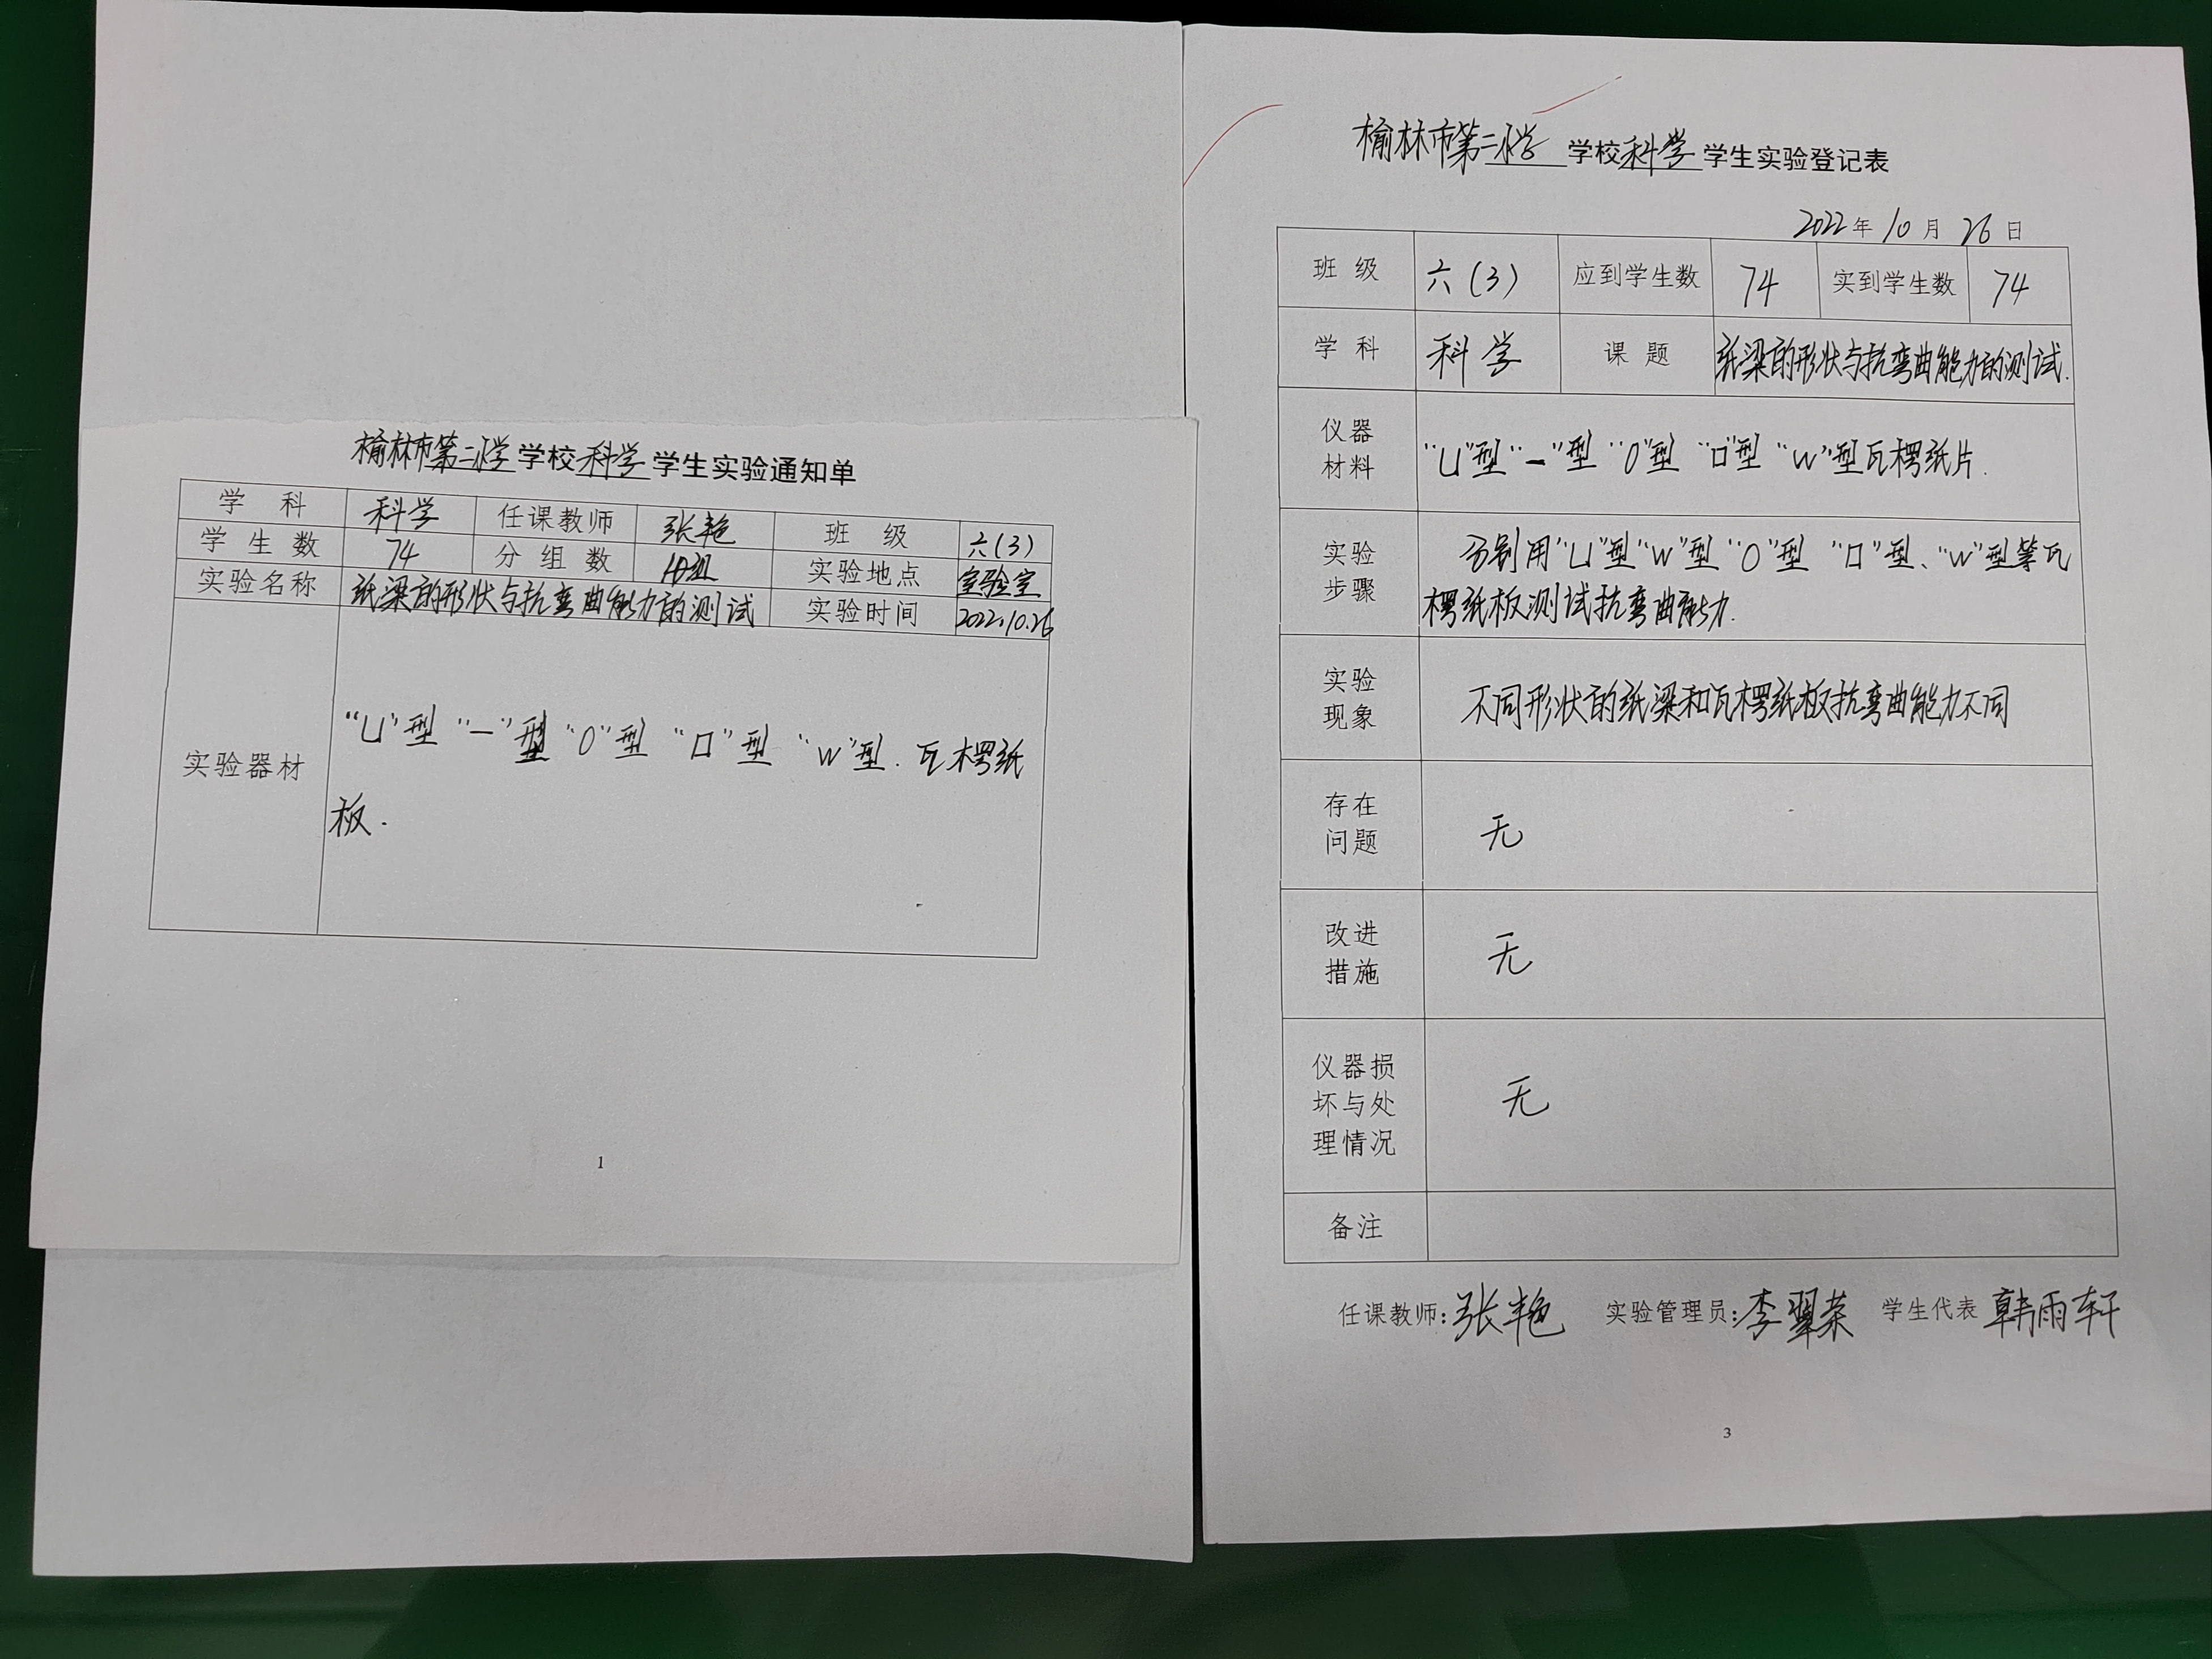 榆林市第二小学学校科学学生实验通知单
学科 科学 任课教师 张艳 班级 六(3)
学生数 74 分组数 10组 实验地点 实验室
实验名称 纸梁的形状与抗弯曲能力的测试 实验时间 2022.10.26
实验器材 “U”型 “一”型 “O”型 “口”型 “W”型.瓦楞纸
板.
1
榆林市第二小学学校科学学生实验登记表
2022年10月26日
班级 六(3) 应到学生数 74 实到学生数 74
学科 科学 课题 纸梁的形状与抗弯曲能力的测试.
仪器
材料
“U”型“一”型 “O”型 “口”型 “W”型瓦楞纸片.
实验
步骤
分别用“U”型“W”型 “O”型 “口”型、“W”型等瓦
楞纸板测试抗弯曲能力.
实验
现象
不同形状的纸梁和瓦楞纸板抗弯曲能力不同
存在
问题
无
改进
措施
无
仪器损
坏与处
理情况
无
备注
任课教师:张艳 实验管理员:李翠荣 学生代表 韩雨轩
3